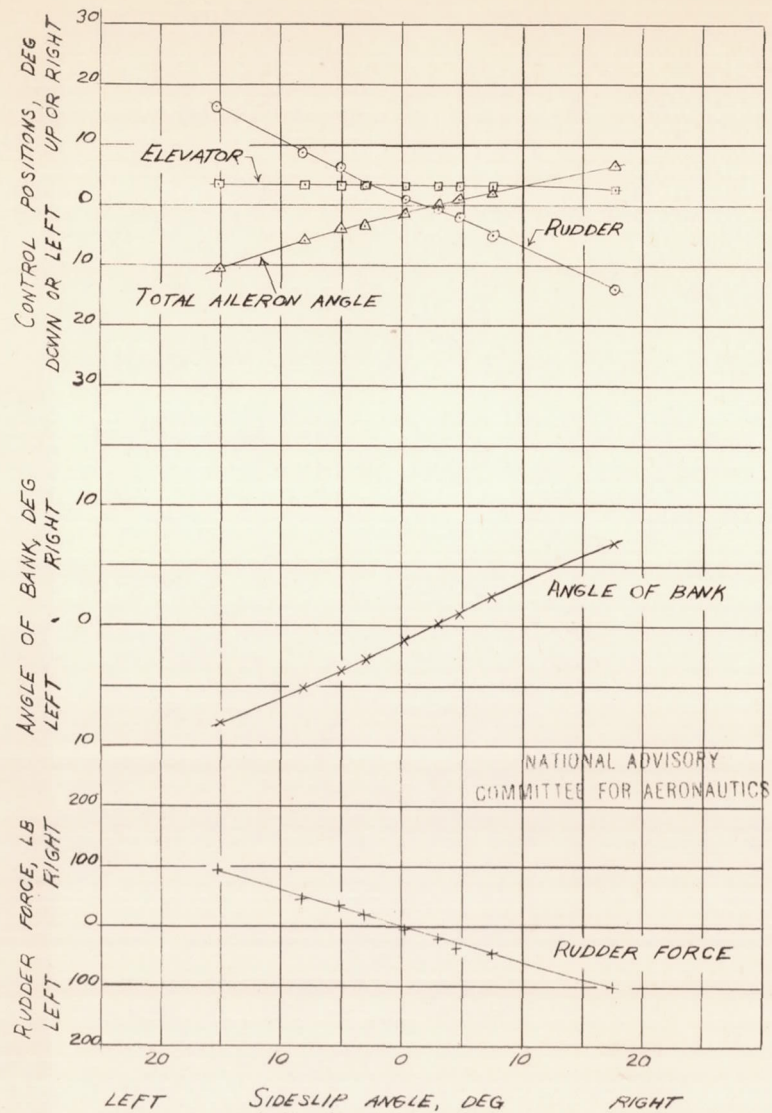 CONTROL POSITIONS, DEG
DOWN OR LEFT UP OR RIGHT
30
20
10
0
10
20
30
ELEVATOR
RUDDER
TOTAL AILERON ANGLE
ANGLE OF BANK, DEG
LEFT RIGHT
10
0
10
ANGLE OF BANK
NATIONAL ADVISORY
COMMITTEE FOR AERONAUTICS
RUDDER FORCE, LB
LEFT RIGHT
200
100
0
100
200
RUDDER FORCE
20 10 0 10 20
LEFT SIDESLIP ANGLE, DEG RIGHT